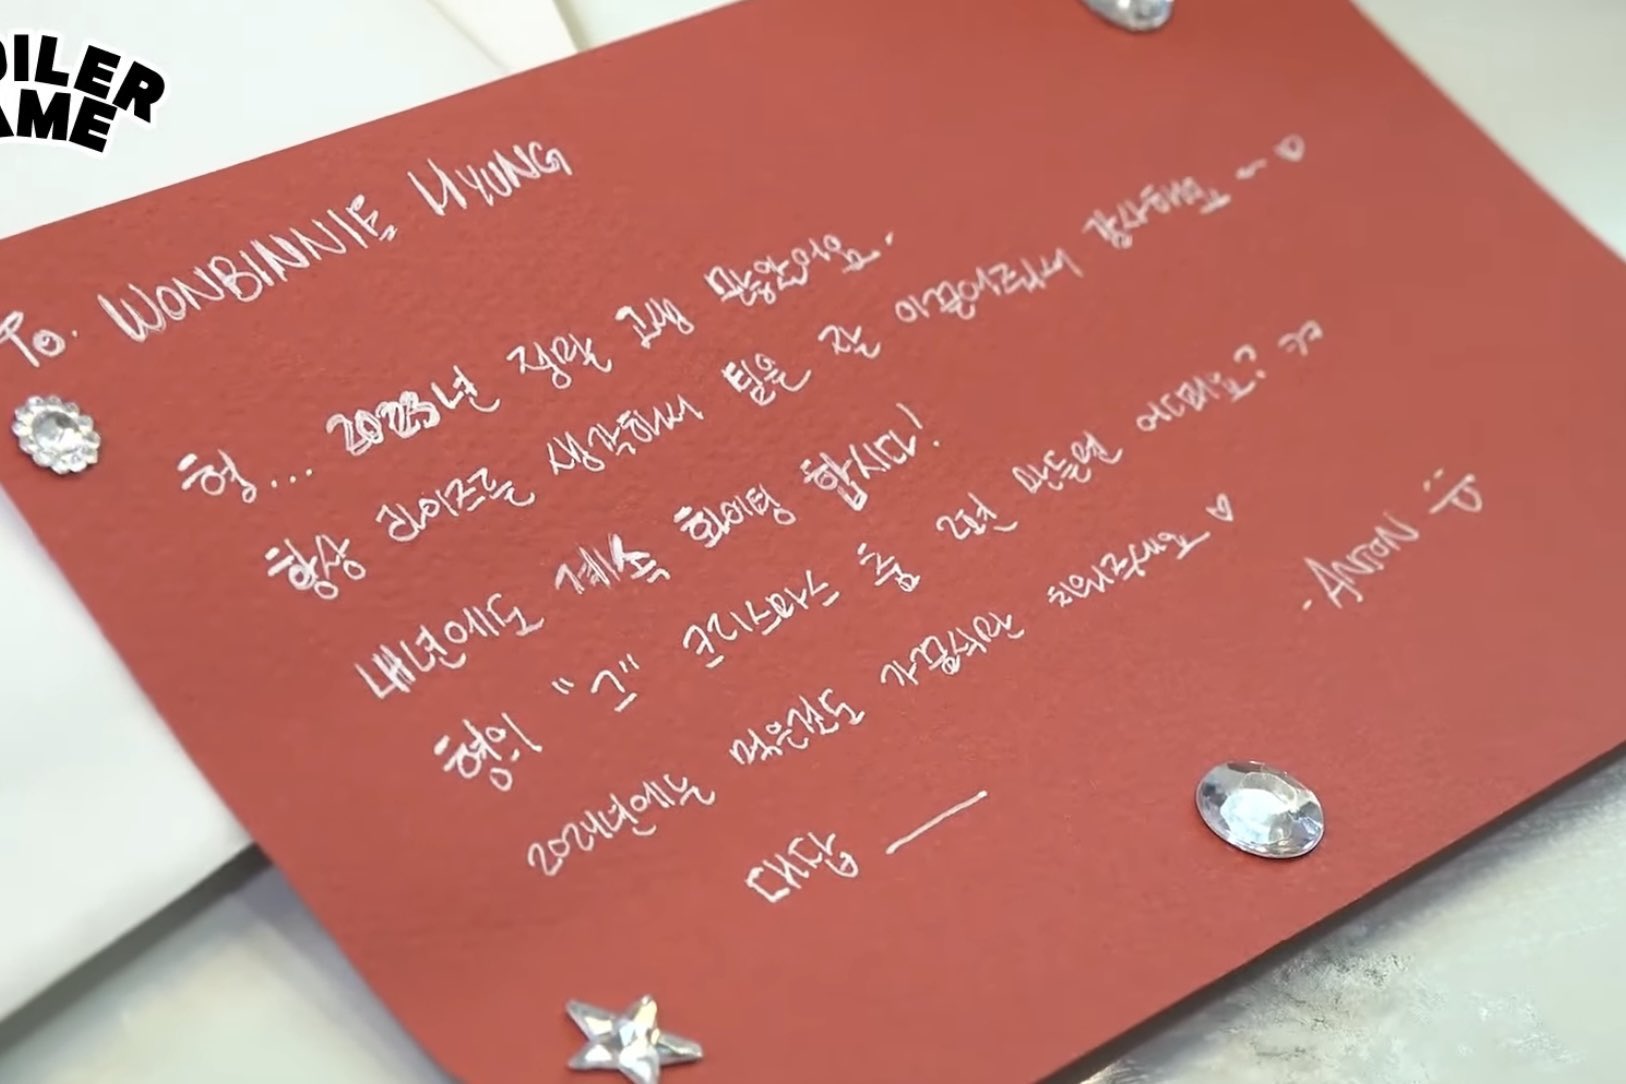 OILER
AME
To. WONBINNIE HYUNG
형... 2023년 정말 고생 많았어요.
항상 라이즈를 생각해서 팀을 잘 이끌어줘서 감사해용~♡
내년에도 계속 화이팅 합시다!
형의 "그" 크리스마스 춤 2편 만들면 어때요? ㅋㅋ
2024년에는 ♡
대장 —
- ANTON :P